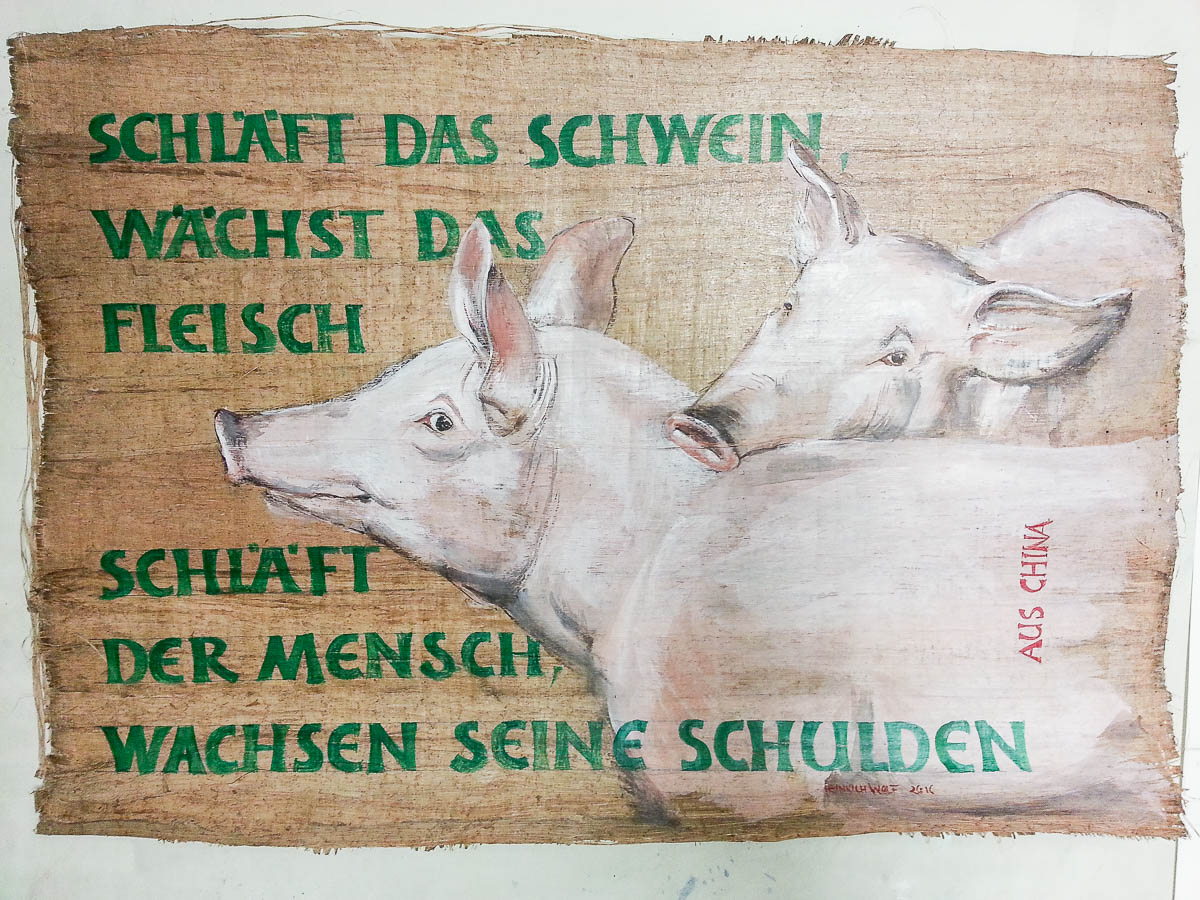 SCHLÄFT DAS SCHWEIN,
WÄCHST DAS
FLEISCH
SCHLÄFT
DER MENSCH,
WACHSEN SEINE SCHULDEN
AUS CHINA
HEINRICH WOLF 2016